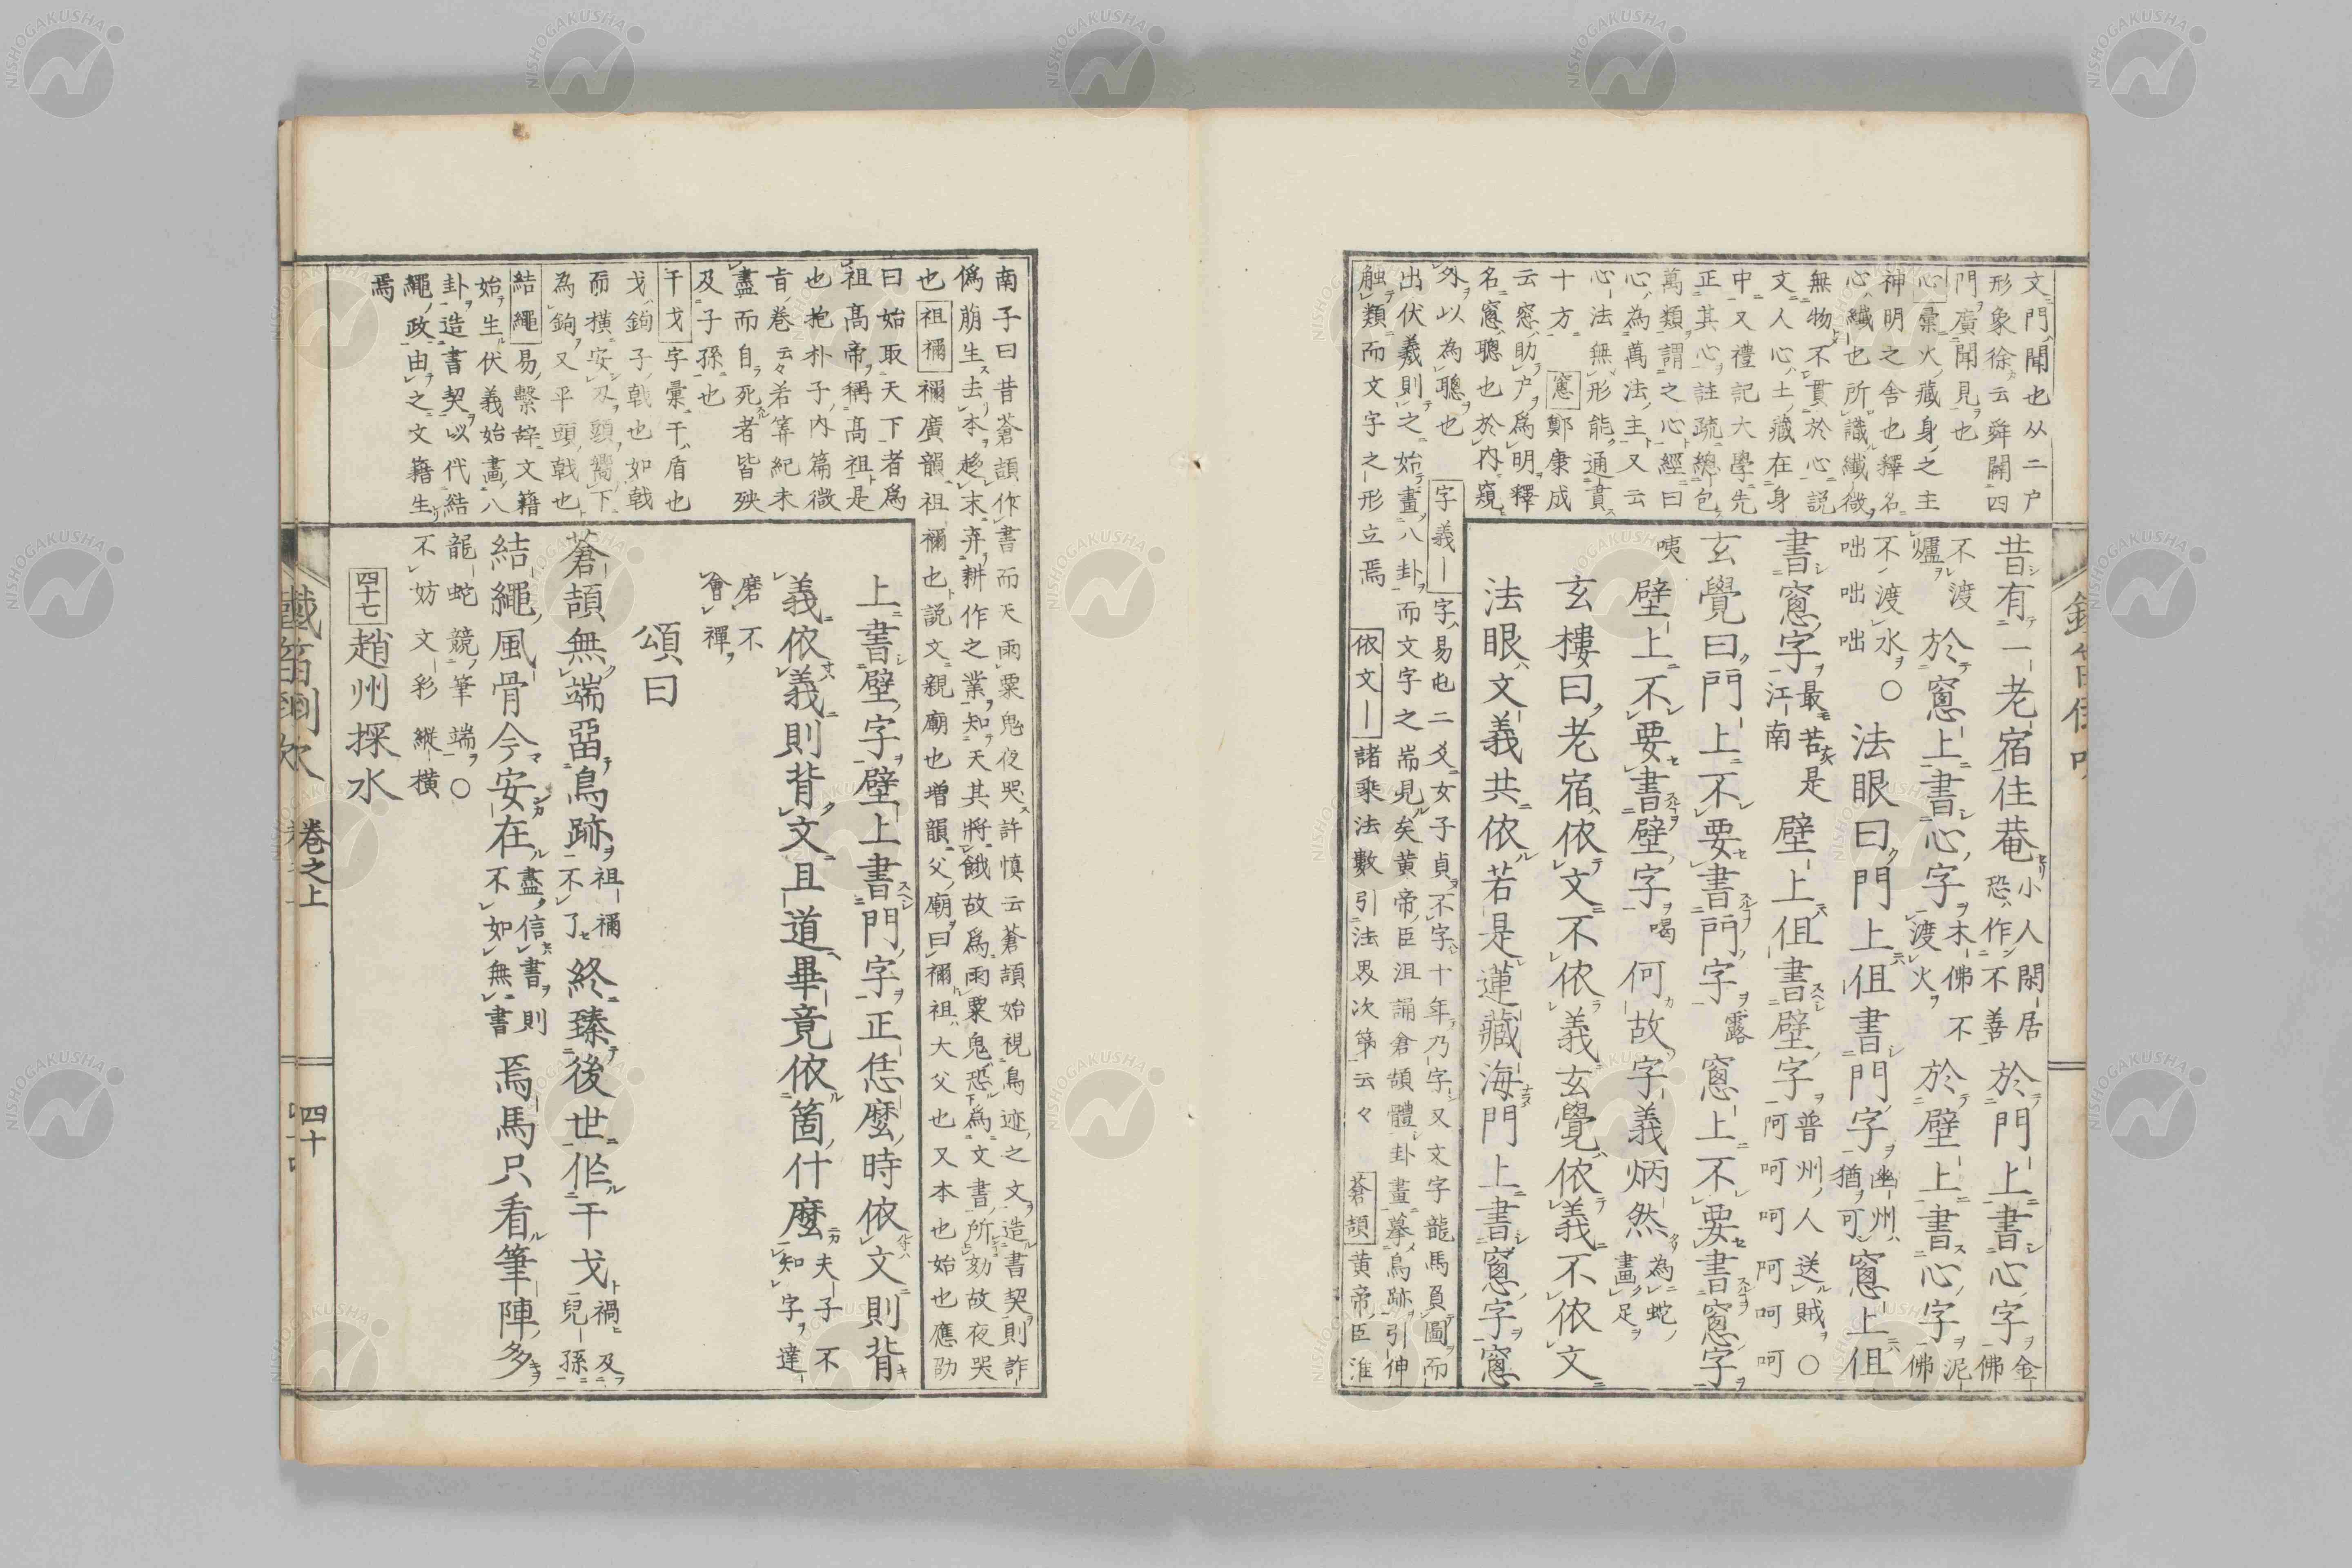 文門聞也从二户
形象徐云舜闢四
門廣聞見也
心彙火藏身之主
神明之舍也釋名
心纎也所識纎微
無物不貫於心説
文人心土藏在身
中又禮記大學先
正其心註疏總包
萬類謂之心經曰
心為萬法主又云
心法無形能通貫
十方窻鄭康成
云窓助户爲明釋
名窻聰也於内窺
外以為聰也 字義｜字易屯二爻女子貞不字十年乃字又文字龍馬負圖而
出伏羲則之始畫八卦而文字之耑見矣黄帝臣沮誦倉頡體卦畫摹鳥跡引伸
触類而文字之形立焉 依文｜諸乘法數引法界次第云々 蒼頡黄帝臣淮
昔有一老宿住菴小人閑居恐作不善於門上書心字金佛
不渡爐於窻上書心字木佛不渡火於壁上書心字泥佛
不渡水〇咄咄咄法眼曰門上但書門字幽州猶可窻上但
書窻字最苦是江南壁上但書壁字普州人送賊〇呵呵呵呵呵呵
玄覺曰門上不要書門字露窻上不要書窻字
咦
壁上不要書壁字喝何故字義炳然為蛇畫足
玄樓曰老宿依文不依義玄覺依義不依文
法眼文義共依若是蓮藏海門上書窻字窻
南子曰昔蒼頡作書而天雨粟鬼夜哭許慎云蒼頡始視鳥迹之文造書契則詐
僞萠生去本趍末弃耕作之業知天其將餓故爲雨粟鬼恐為文書所劾故夜哭
也 祖禰禰廣韻祖禰也説文親廟也増韻父廟曰禰祖大父也又本也始也應劭
曰始取天下者爲
祖髙帝稱髙祖是
也抱朴子内篇微
㫖卷云々若筭紀未
盡而自死者皆殃
及子孫也
干戈字彙干盾也
戈鉤子戟也如戟
而横安刃頭嚮下
為鉤又平頭戟也
結繩易繫辞文籍
始生伏義始畫八
卦造書契以代結
繩政由之文籍生
焉
上書壁字壁上書門字正恁麽時依文則背
義依義則背文且道畢竟依箇什麽夫子不知字達
磨不會禪
頌曰
蒼頡無端畱鳥跡祖禰不了終臻後世作干戈禍及兒孫
結繩風骨今安在盡信書則不如無書焉馬只看筆陣多
龍蛇競筆端〇不妨文彩縱横
四十七 趙州探水
卷之上
四十